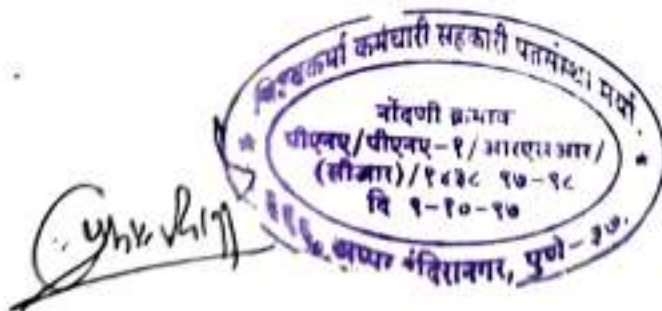 विश्वकर्मा कर्मचारी सहकारी पतसंस्था मर्या.
नोंदणी क्रमांक
पीएनए/पीएनए-१/आरएसआर/
(सीआर)/१४३८ ९७-९८
दि ९-१०-९७
अप्पर इंदिरानगर, पुणे-३७.